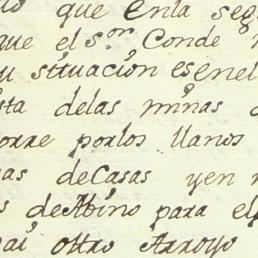 que enla seg
que el S.or Conde
u situacion es, enel
sta delas minas
orre porlos llanos
as deCasas yen
s deAbino para el
ai, ottro Arroyo